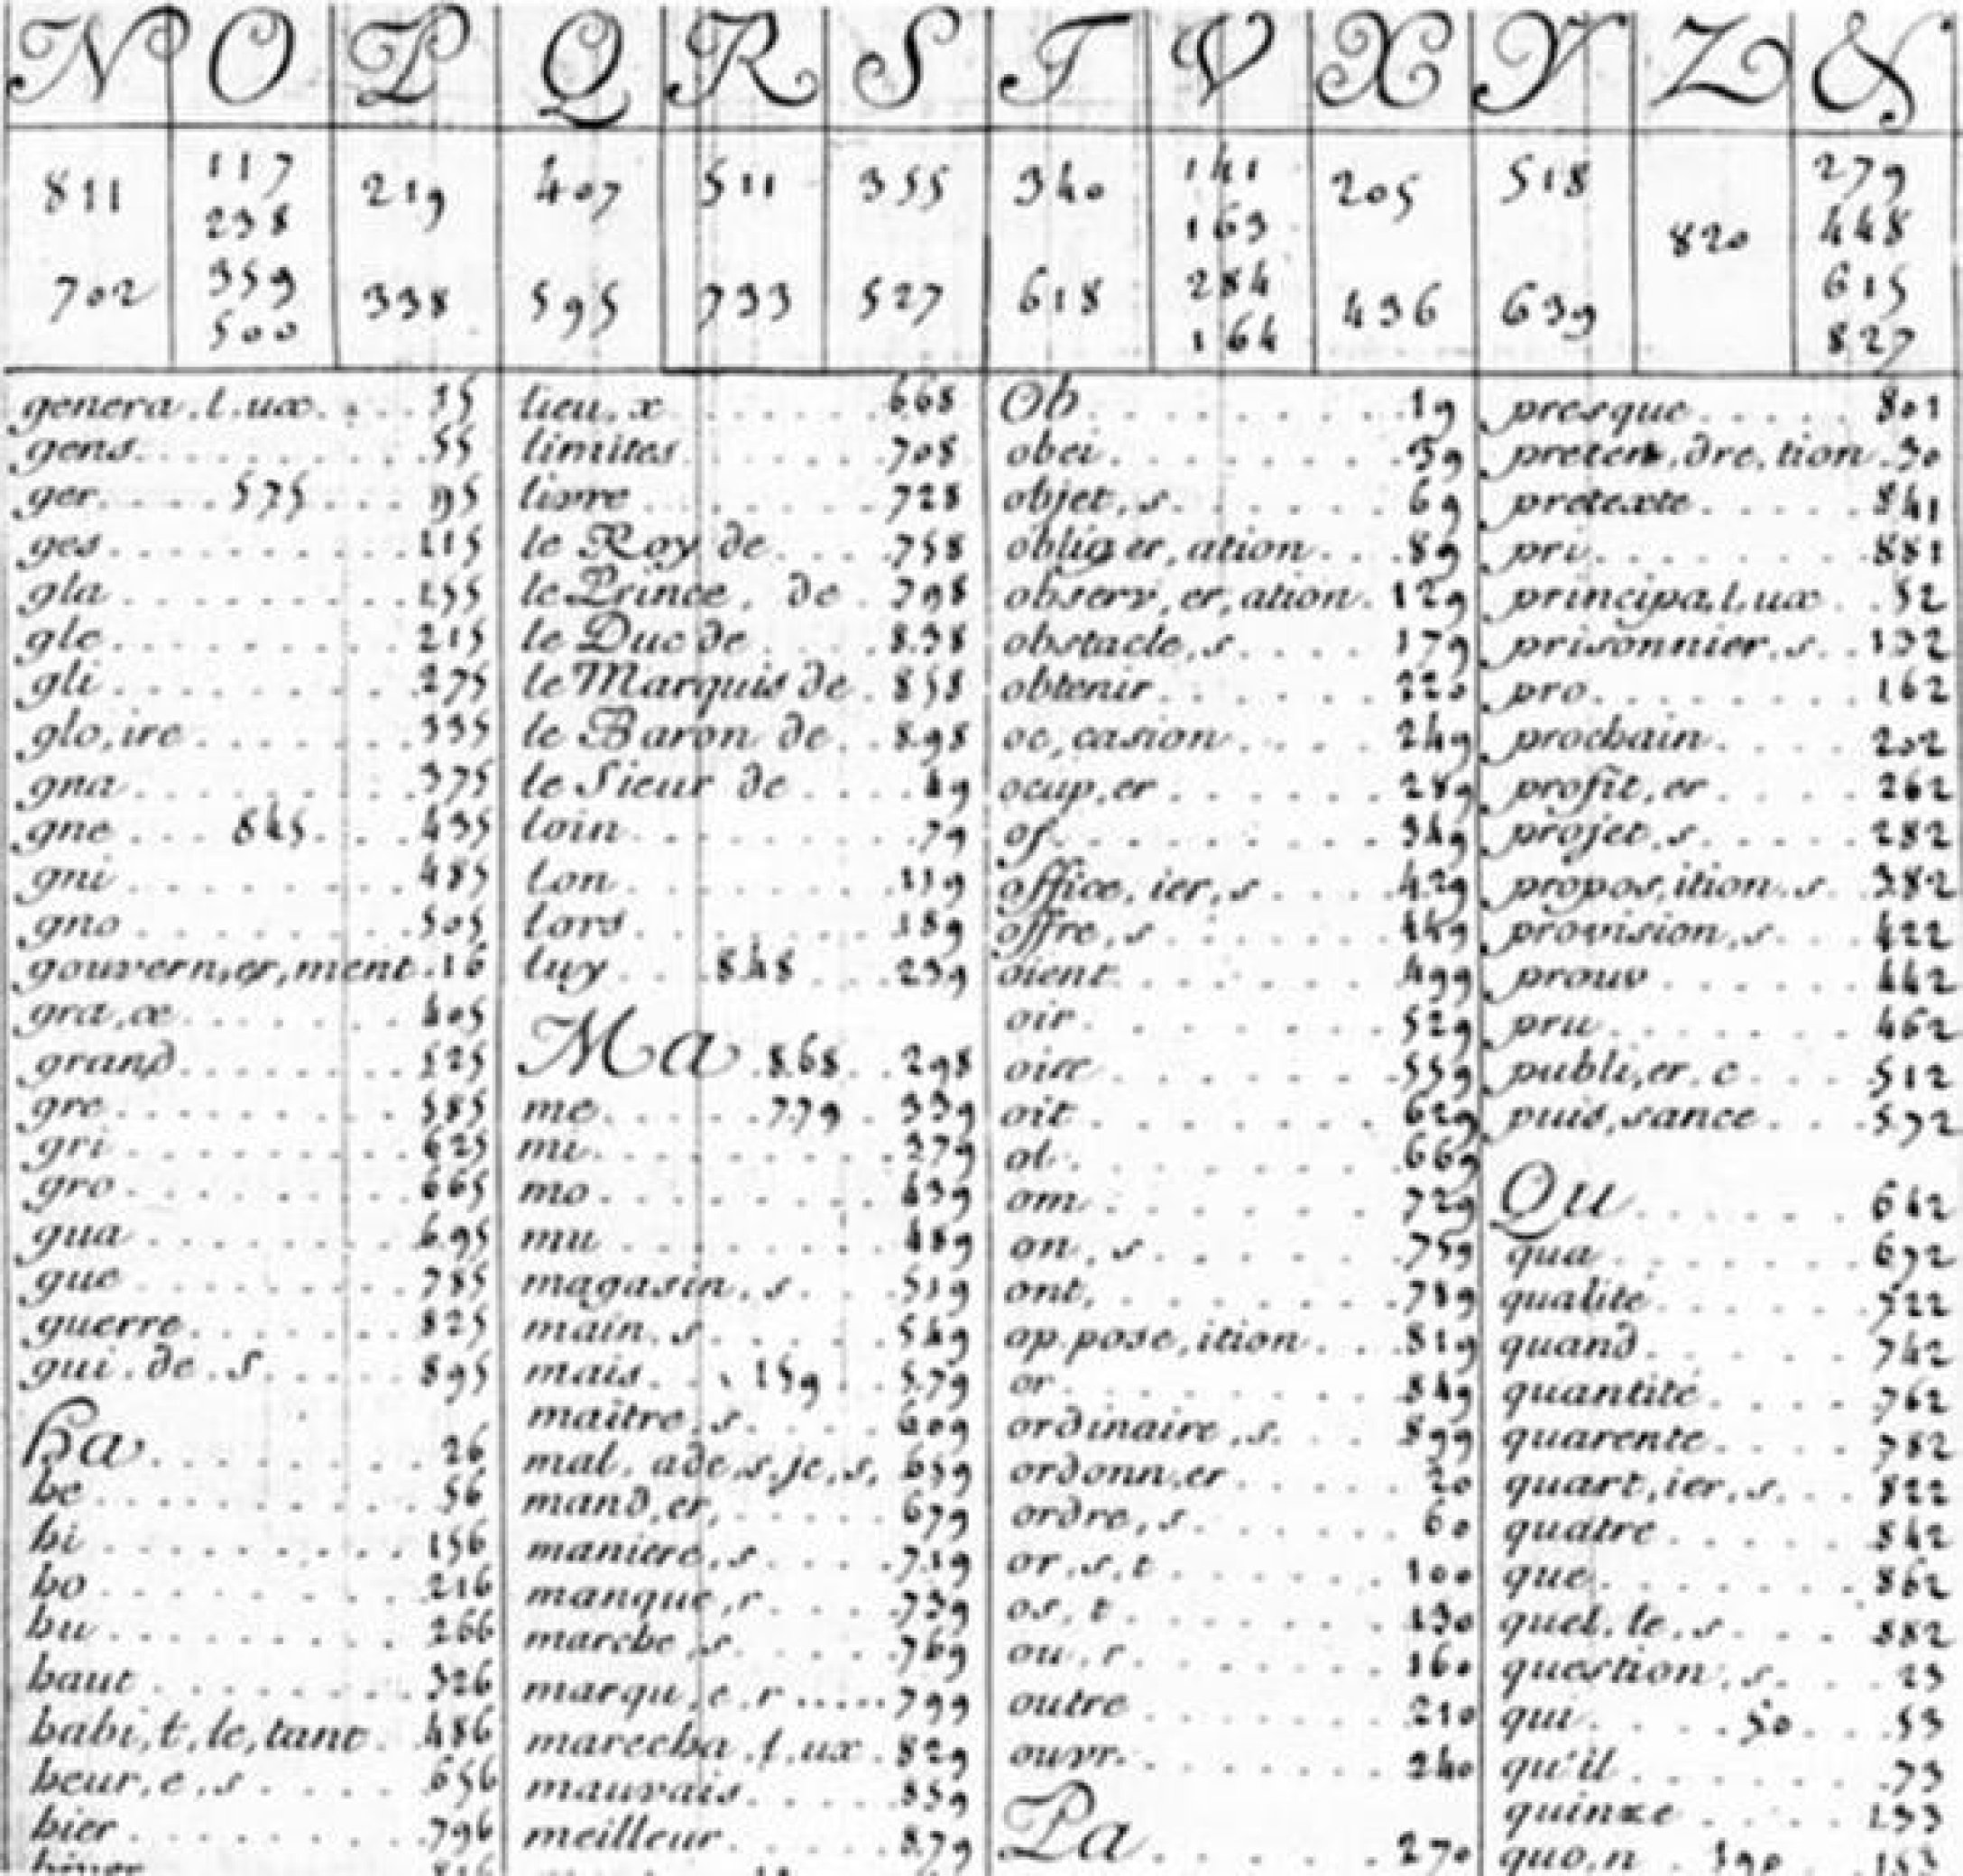 N O P Q R S T V X Y Z &
811 117 219 407 511 355 340 141 205 518 820 279
238 163 448
702 359 338 595 733 527 618 284 436 639 615
500 164 827
genera.l.ux. . . . 15
gens. . . . 55
ger. . . . 575 . . . 95
ges. . . . 115
gla . . . . 255
gle. . . . 215
gli. . . . 275
glo,ire. . . . 335
gna. . . . 375
gne . . . 845. . . 435
gni . . . . 485
gno . . . . 505
gouvern,er,ment. 16
gra,ce. . . . 405
grand. . . . 525
gre. . . . 585
gri . . . . 625
gro. . . . 665
gua. . . . 695
gue. . . . 785
guerre. . . . 825
gui.de.s. . . . 895
ha. . . . 26
he. . . . 56
hi . . . . 156
ho. . . . 216
hu. . . . 266
haut . . . . 326
habi,t,le,tant. 486
heur,e,s . . . . 656
hier. . . . 796
lieu,x . . . . 668
limites. . . . 708
livre . . . . 728
le Roy de. . . . 758
le Prince, de . 798
le Duc de . . . . 838
le Marquis de . 858
le Baron de. . 898
le Sieur de . . . . 49
loin. . . . 79
Lon. . . . 119
Lors. . . . 189
luy . . . 848 . . . 239
Ma . 868. . 298
me. . . . 779 . 339
mi. . . . 379
mo. . . . 439
mu . . . . 489
magasin,s. . . . 519
main.s. . . . 549
mais. . . 159 . . 579
maitre,s. . . . 609
mal.ade,s,je,s, 659
mand,er, . . . . 679
maniere,s . . . . 719
manque,r. . . . 739
marche,s. . . . 769
marqu,e,r . . . . 799
marecha.l.ux . 829
mauvais. . . . 859
meilleur. . . . 879
Ob. . . . 19
obei. . . . 39
objet,s. . . . 69
oblig er,ation. . . 89
observ,er,ation. 129
obstacle,s. . . . 179
obtenir. . . . 220
oc,casion. . . . 249
ocup,er . . . . 289
of. . . . 349
office,ier,s . . . . 429
offre,s. . . . 449
oient. . . . 499
oir. . . . 529
oire . . . . 559
oit . . . . 629
ol. . . . 669
om. . . . 729
on,s. . . . 759
ont, . . . . 789
op.pose,ition. . . 819
or. . . . 849
ordinaire,s. . . . 899
ordonn,er . . . . 20
ordre,s. . . . 60
or,s,t . . . . 100
os,t . . . . 130
ou,r. . . . 160
outre . . . . 210
ouvr. . . . 240
Pa. . . . 270
presque. . . . 801
preten,dre,tion. 30
pretexte. . . . 841
pri. . . . 881
principa,l,ux . . 52
prisonnier,s. . 132
pro. . . . 162
prochain. . . . 202
profit,er . . . . 262
projet,s. . . . 282
propos,ition.s. 382
provision,s. . . 422
prouv . . . . 442
pru. . . . 462
publi,er.c . . . 512
puis,sance . . . 592
Qu. . . . 642
qua . . . . 692
qualité. . . . 722
quand. . . . 742
quantité. . . . 762
quarente. . . . 782
quart,ier,s. . . 822
quatre. . . . 842
que. . . . 862
quel.le.s. . . . 882
question,s. . . . 23
qui. . . . 50. . . 53
qu'il. . . . 73
quinze. . . . 133
quo,n . 190 . 153